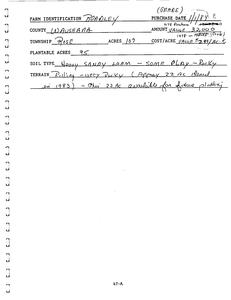 (GERES)
FARM IDENTIFICATION BRADLEY PURCHASE DATE
COUNTY WAUSHARA AMOUNT VALUE 32,000
TOWNSHIP ROSE ACRES 107 COST/ACRE VALUE $299/AC
PLANTABLE ACRES 95
SOIL TYPE Heavy SANDY LOAM - SOME CLAY - Rocky
TERRAIN Rolling - very Rocky (Approx 22 Ac
in 1983) - This 22 Ac available for future planting
47-A